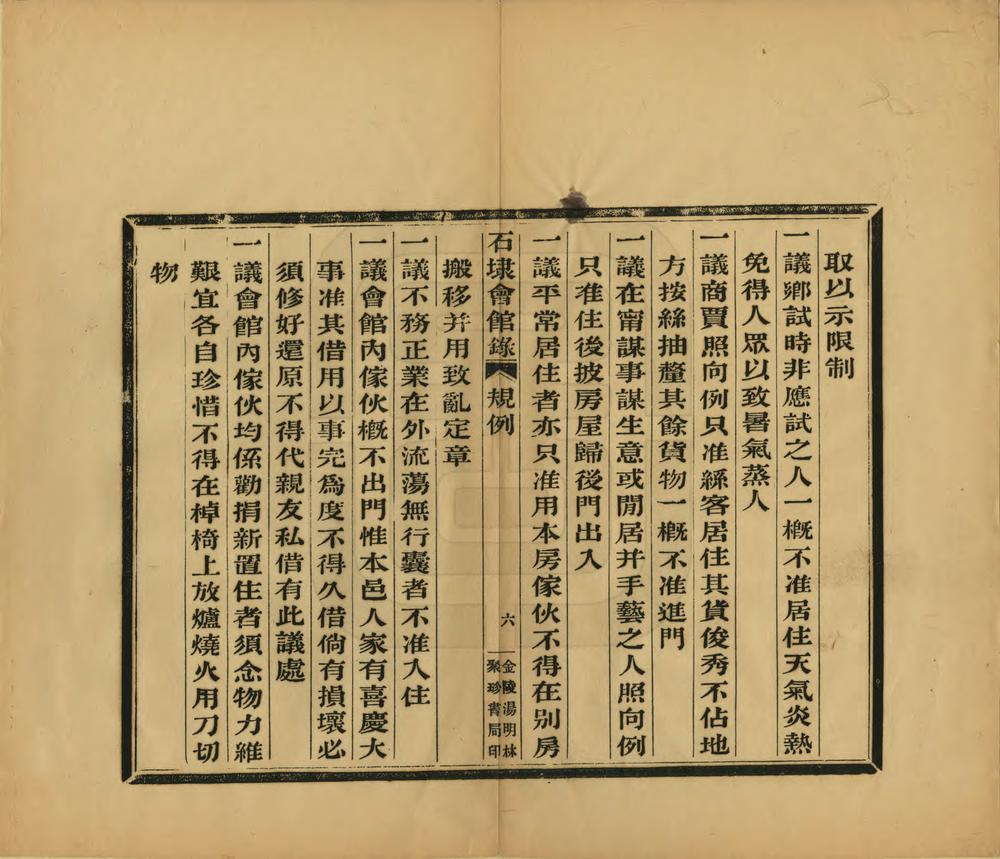 取以示限制
一議鄉試時非應試之人一概不准居住天氣炎熱
免得人眾以致暑氣蒸人
一議商賈照向例只准絲客居住其貨俊秀不佔地
方按絲抽釐其餘貨物一概不准進門
一議在甯謀事謀生意或閒居并手藝之人照向例
只准住後披房屋歸後門出入
一議平常居住者亦只准用本房傢伙不得在別房
石埭會館錄 規例 六 金陵湯明林
聚珍書局印
搬移并用致亂定章
一議不務正業在外流蕩無行囊者不准入住
一議會館內傢伙概不出門惟本邑人家有喜慶大
事准其借用以事完為度不得久借倘有損壞必
須修好還原不得代親友私借有此議處
一議會館內傢伙均係勸捐新置住者須念物力維
艱宜各自珍惜不得在棹椅上放爐燒火用刀切
物